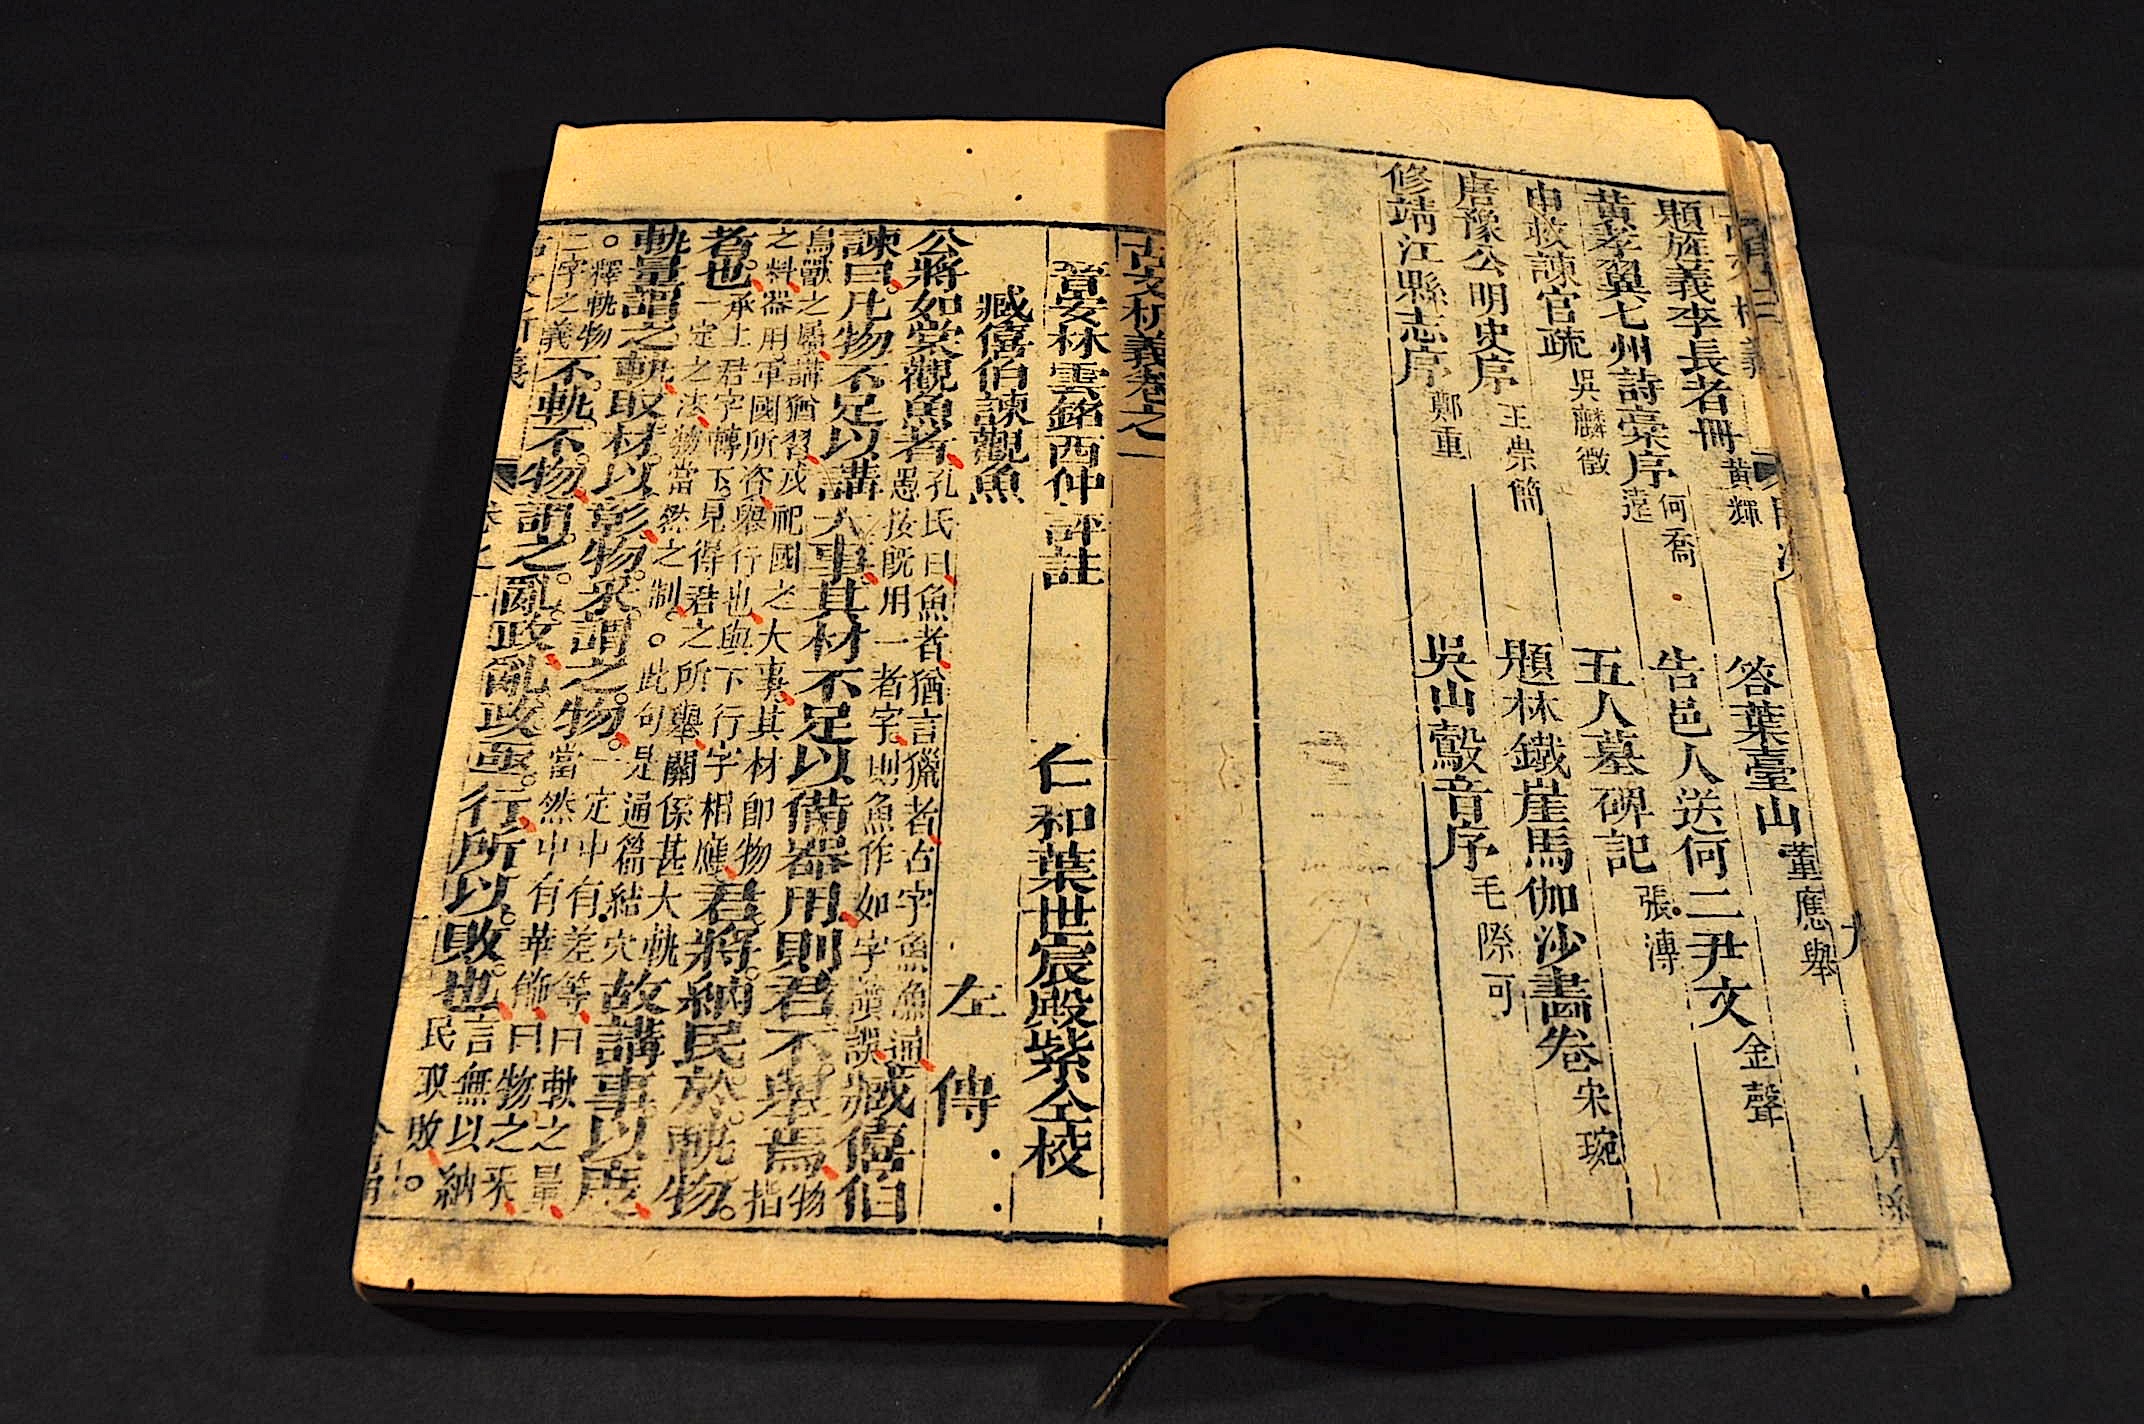 題旌義李長者冊 黃輝 答葉臺山 董應舉
黃孝翼七州詩藁序 何喬遠 告邑人送何二尹文 金聲
申救諫官疏 吳麟徵 五人墓碑記 張溥
唐豫公明史序 王崇簡 題林鐵崖馬伽沙畫卷 宋琬
修靖江縣志序 鄭重 吳山鷇音序 毛際可
古文析義卷之一
晉安林雲銘西仲評註 仁和葉世宸殿紫仝校
臧僖伯諫觀魚 左傳
公將如棠觀魚者 孔氏曰魚者猶言獵者古字魚漁通愚按既用一者字則魚作如字讀誤 臧僖伯
諫曰凡物不足以講大事其材不足以備器用則君不舉焉 物指
鳥獸之屬講猶習戎祀國之大事其材卽物之料器用軍國所資舉行也與下行字相應 君將納民於軌物
者也 承上君字轉下見得君之所舉關係甚大軌一定之法物當然之制○此句是通篇結穴 故講事以度
軌量謂之軌取材以彰物采謂之物 一定中有差等曰軌之量當然中有華飾曰物之采
○釋軌物二字之義 不軌不物謂之亂政亂政亟行所以敗也 言無以納民取敗